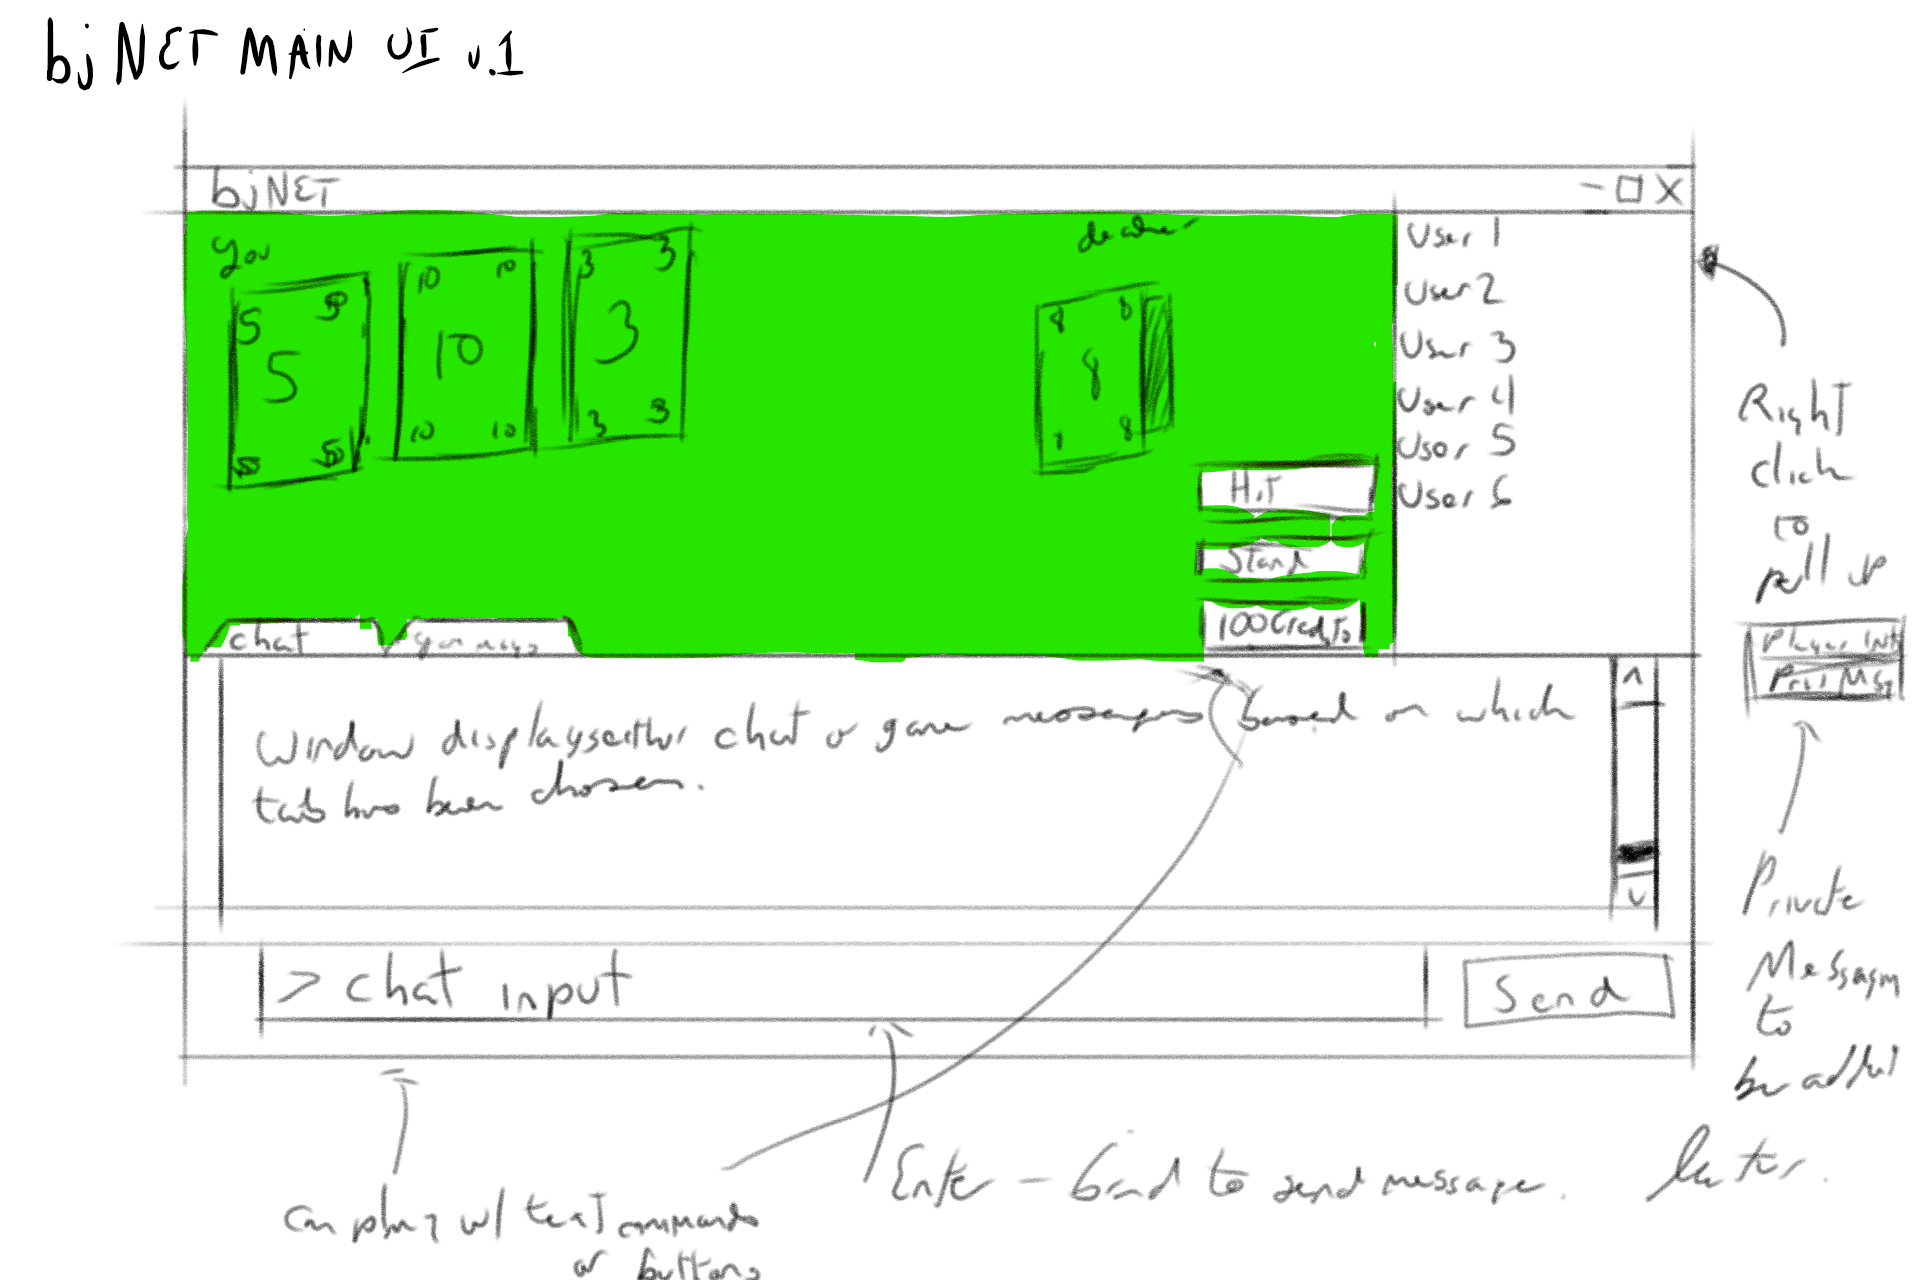 bjNET MAIN UI v.1
bjNET
- □ X
You
dealer
5 5
5
5 5
10 10
10
10 10
3 3
3
3 3
8 8
8
8
User 1
User 2
User 3
User 4
User 5
User 6
Hit
Stand
100 Credits
chat
game msgs
Window displays either chat or game messages based on which
tab has been chosen.
> chat input
Send
Right
click
to
pull up
Player Info
Priv Msg
Private
Messaging
to
be added
later.
Enter - Bind to send message.
Can play w/ text commands
or buttons